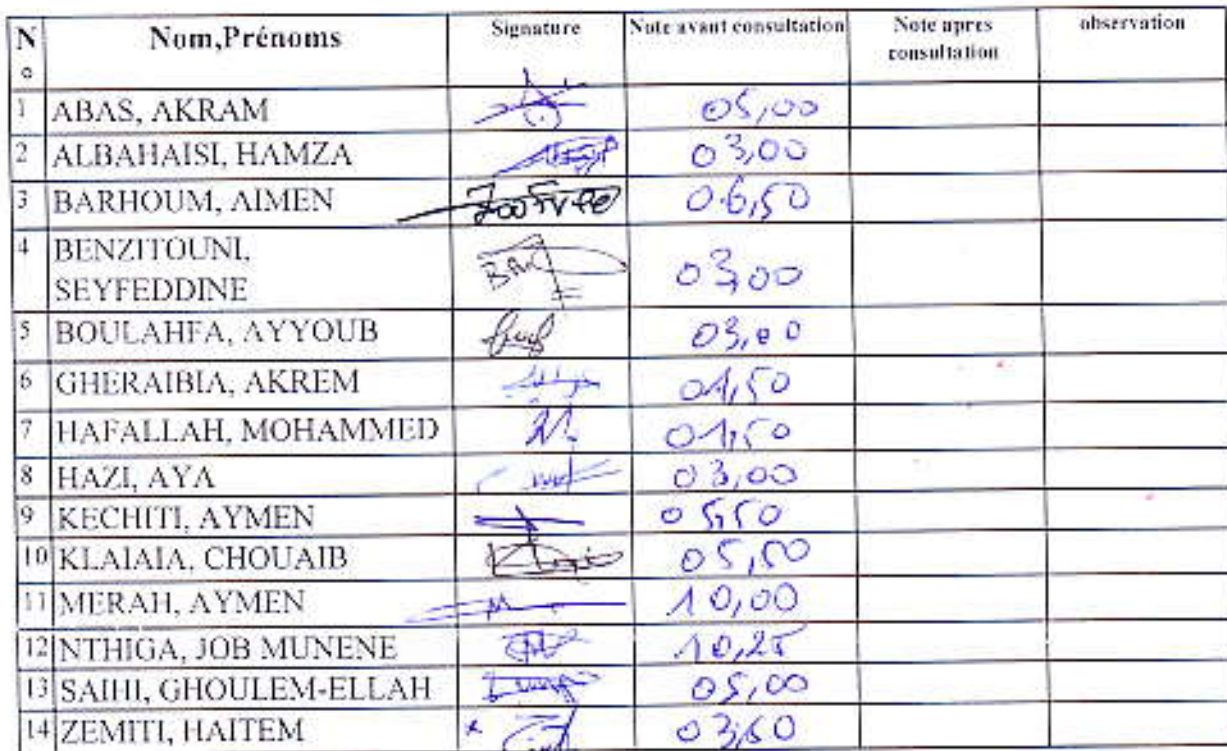 N° Nom,Prénoms Signature Note avant consultation Note apres consultation observation
1 ABAS, AKRAM 05,00
2 ALBAHAISI, HAMZA 03,00
3 BARHOUM, AIMEN 06,50
4 BENZITOUNI,
SEYFEDDINE 03,00
5 BOULAHFA, AYYOUB 03,00
6 GHERAIBIA, AKREM 01,50
7 HAFALLAH, MOHAMMED 01,50
8 HAZI, AYA 03,00
9 KECHITI, AYMEN 05,50
10 KLAIAIA, CHOUAIB 05,50
11 MERAH, AYMEN 10,00
12 NTHIGA, JOB MUNENE 10,25
13 SAIHI, GHOULEM-ELLAH 05,00
14 ZEMITI, HAITEM